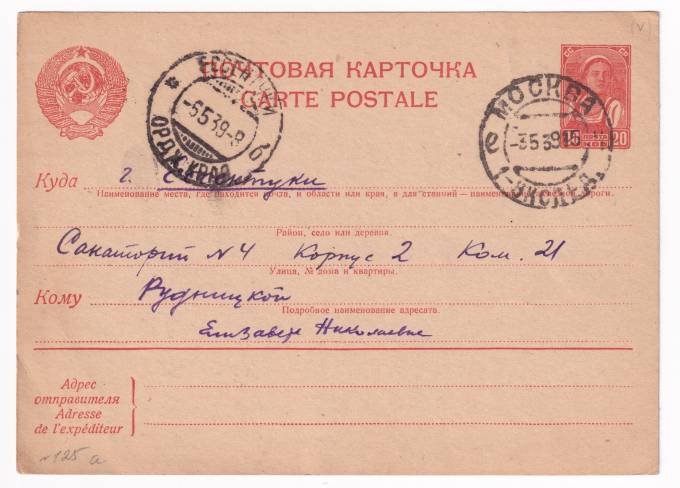 (v)
ПОЧТОВАЯ КАРТОЧКА
CARTE POSTALE
ЕССЕНТУКИ
-5539-8
ОРДЖ.КРАЯ б
МОСКВА
-35 39 16
20
Куда г. Ессентуки
Наименование места, где находится почта, и области или края, а для станций—наименование железной дороги.
Район, село или деревня.
Санаторий № 4 Корпус 2 Ком. 21
Улица, № дома и квартиры.
Кому Рудницкой
Подробное наименование адресата.
Елизавете Николаевне
Адрес
отправителя
Adresse
de l'expéditeur
125 а